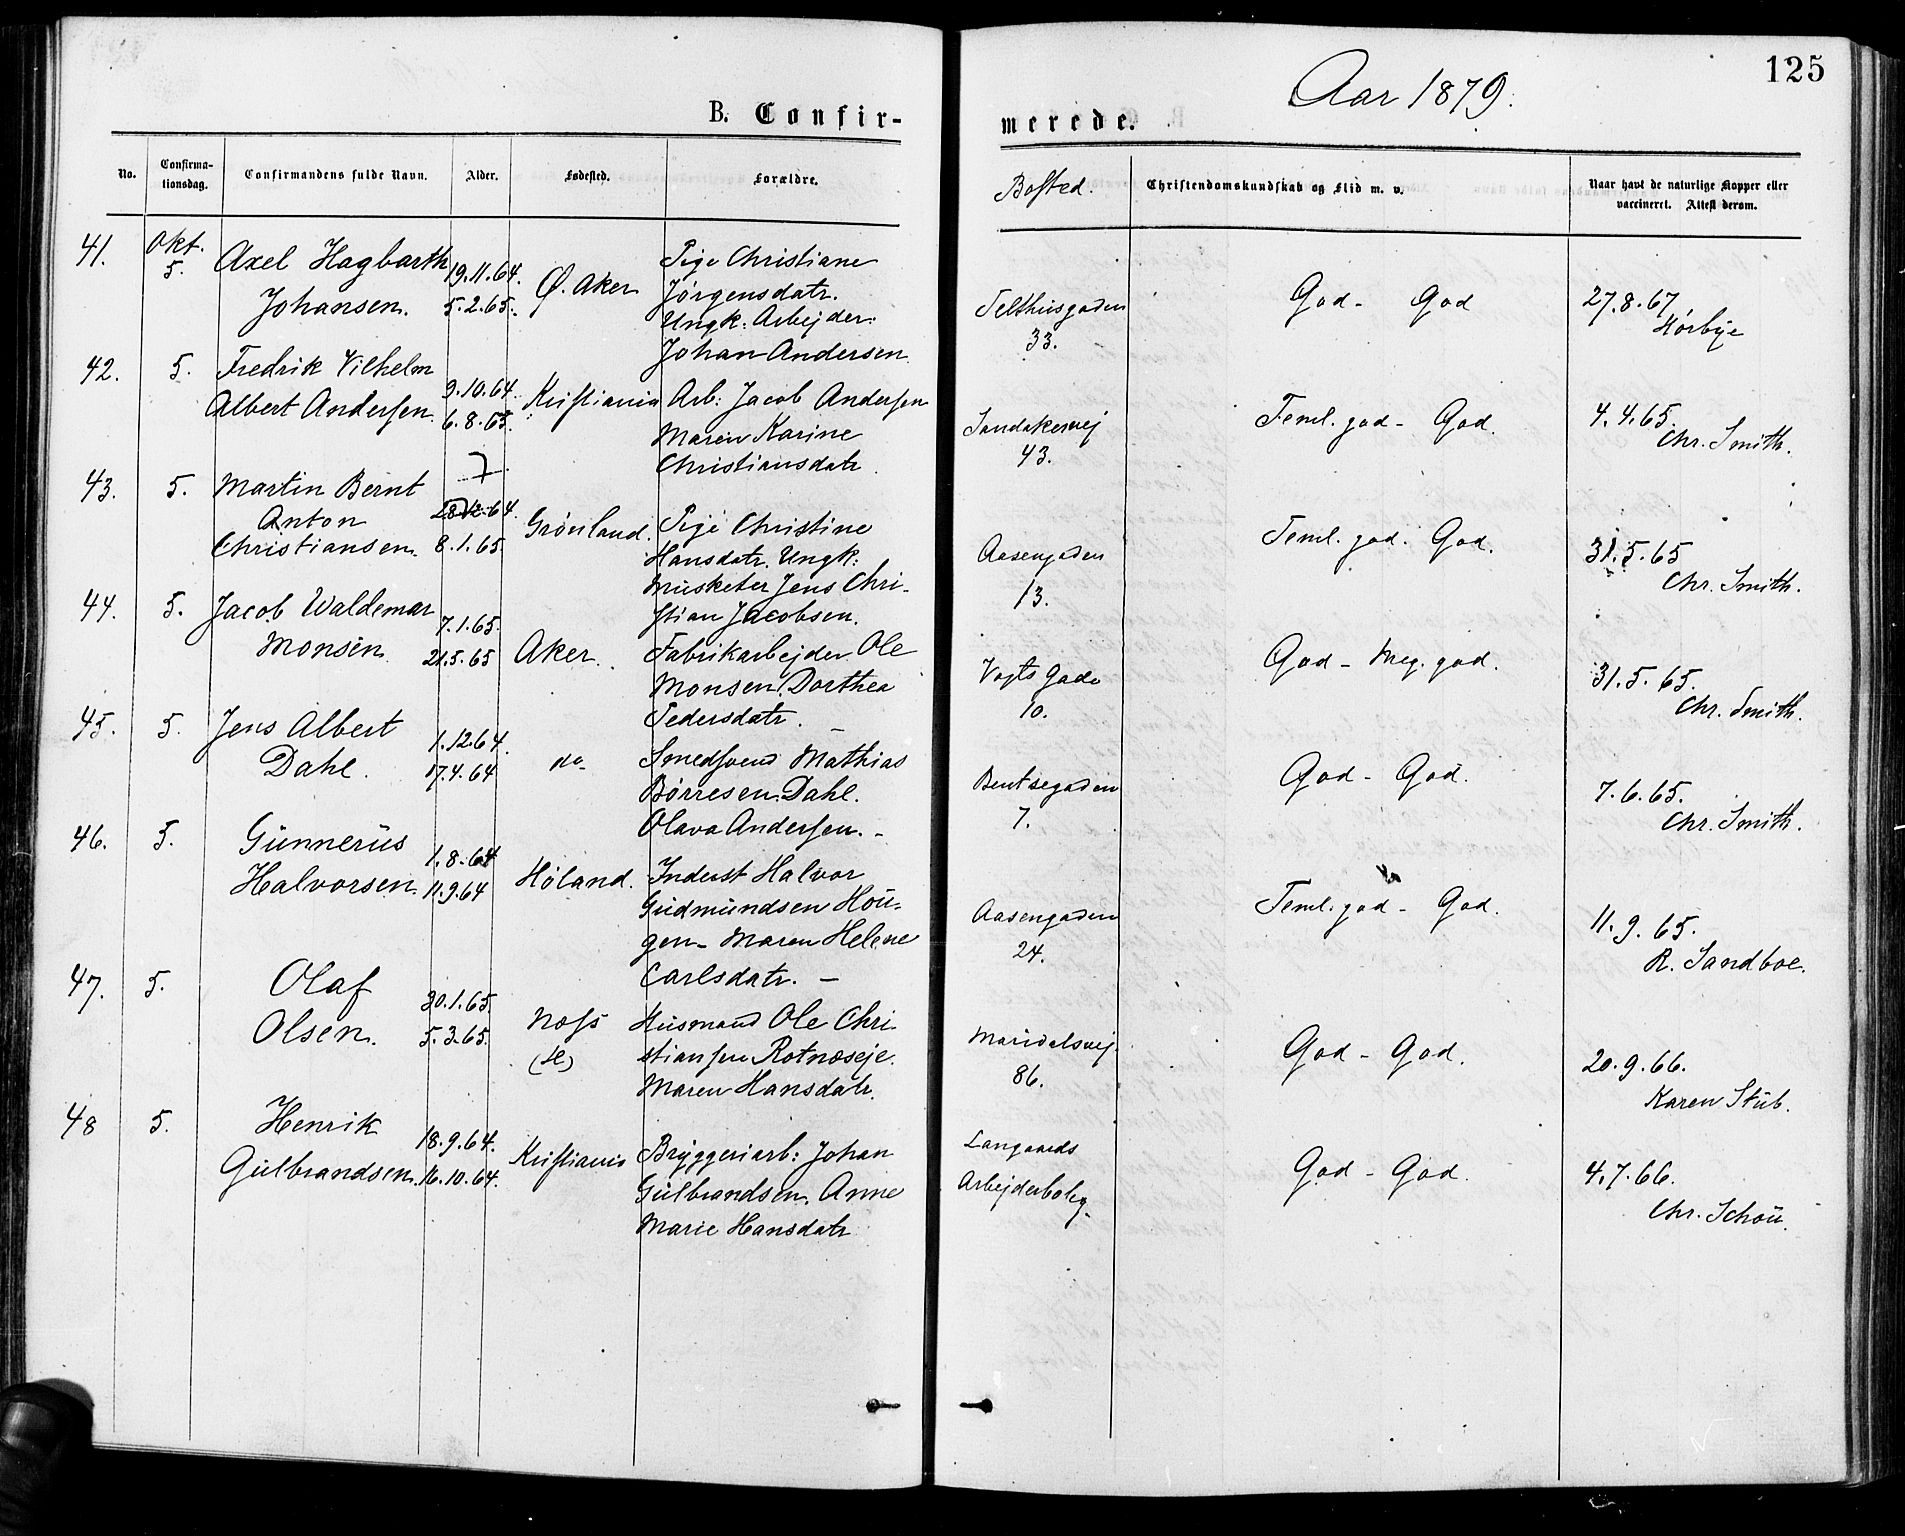 125
Aar 1879.
B. Confir-
merede.
No.
Confirma-
tionsdag.
Confirmandens fulde Navn.
Alder.
Fødested.
Forældre.
Bosted.
Christendomskundskab og Flid m. v.
Naar havt de naturlige Kopper eller
vaccineret. Attest derom.
41.
Okt.
5.
Axel Hagbarth
Johansen.
19.11.64.
5.2.65.
Ø. Aker
Pige Christiane
Jörgensdatr.
Ungk: Arbejder:
Johan Andersen.
Telthusgaden
33.
God - God
27.8.67
Hörbye
42.
5.
Fredrik Vilhelm
Albert Andersen.
9.10.64.
6.8.65.
Kristiania
Arb: Jacob Andersen
Maren Karine
Christiansdatr.
Sandakervej
43.
Teml. god - God.
4.4.65.
Chr. Smith.
43.
5.
Martin Bernt
Anton
Christiansen.
7.
28.12.64.
8.1.65.
Grönland.
Pige Christine
Hansdatr. Ungk:
Musketer Jens Chri-
stian Jacobsen.
Aasengaden
13.
Teml. god. God.
31.5.65
Chr. Smith.
44.
5.
Jacob Waldemar
Monsen
7.1.65.
21.5.65
Aker.
Fabrikarbejder Ole
Monsen. Dorthea
Pedersdatr.
Vogts Gade
10.
God - Meg. god.
31.5.65.
Chr. Smith.
45.
5.
Jens Albert
Dahl.
1.12.64.
17.4.64
do-
Smedsvend Mathias
Börresen Dahl.
Olava Andersen. -
Bentsegaden
7.
God - God.
7.6.65.
Chr. Smith.
46.
5.
Gunnerus
Halvorsen.
1.8.64
11.9.64
Höland.
Inderst Halvor
Gudmundsen Hou-
gen - Maren Helene
Carlsdatr. -
Aasengaden
24.
Teml. god - God.
11.9.65.
R. Sandboe.
47.
5.
Olaf
Olsen.
30.1.65.
5.3.65.
Næs
Husmand Ole Chri-
stiansen Rotnæseje.
Maren Hansdatr.
Maridalsvej.
86.
God - God.
20.9.66.
Karen Stub.
48
5.
Henrik
Gulbrandsen.
18.9.64.
16.10.64.
Kristiania
Bryggeriarb: Johan
Gulbrandsen. Anne
Marie Hansdatr
Langaards
Arbejderbolig.
God - God.
4.7.66.
Chr. Schou.